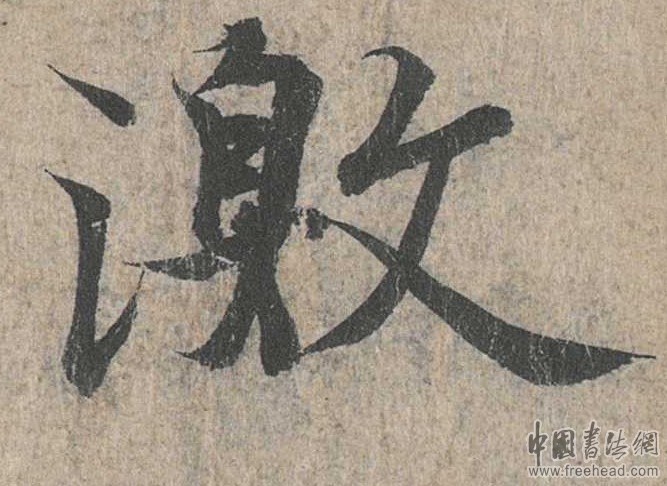 激
中国书法網
www.freehead.com